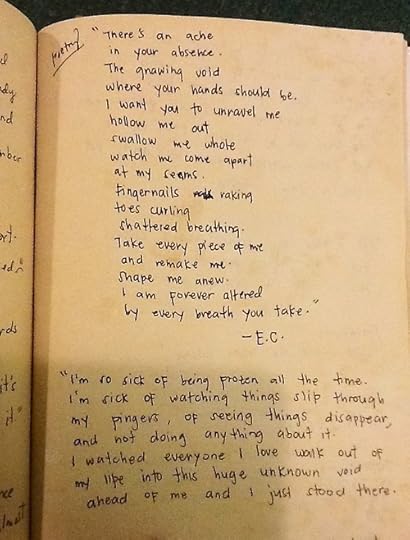 poetry
"There's an ache
in your absence.
The gnawing void
where your hands should be.
I want you to unravel me
hollow me out
swallow me whole
watch me come apart
at my seams.
Fingernails raking
toes curling
shattered breathing.
Take every piece of me
and remake me.
shape me anew.
I am forever altered
by every breath you take."
- E.C.
"I'm so sick of being frozen all the time.
I'm sick of watching things slip through
my fingers, of seeing things disappear,
and not doing anything about it.
I watched everyone I love walk out of
my life into this huge unknown void
ahead of me and I just stood there.